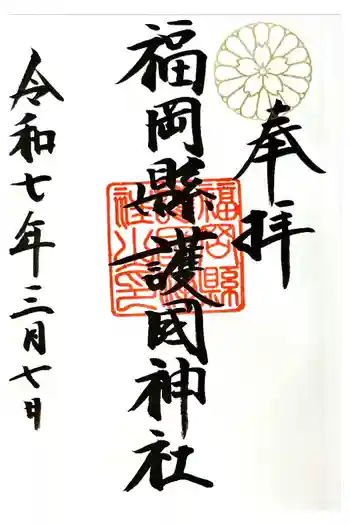 奉拝
福岡縣護國神社
令和七年三月七日